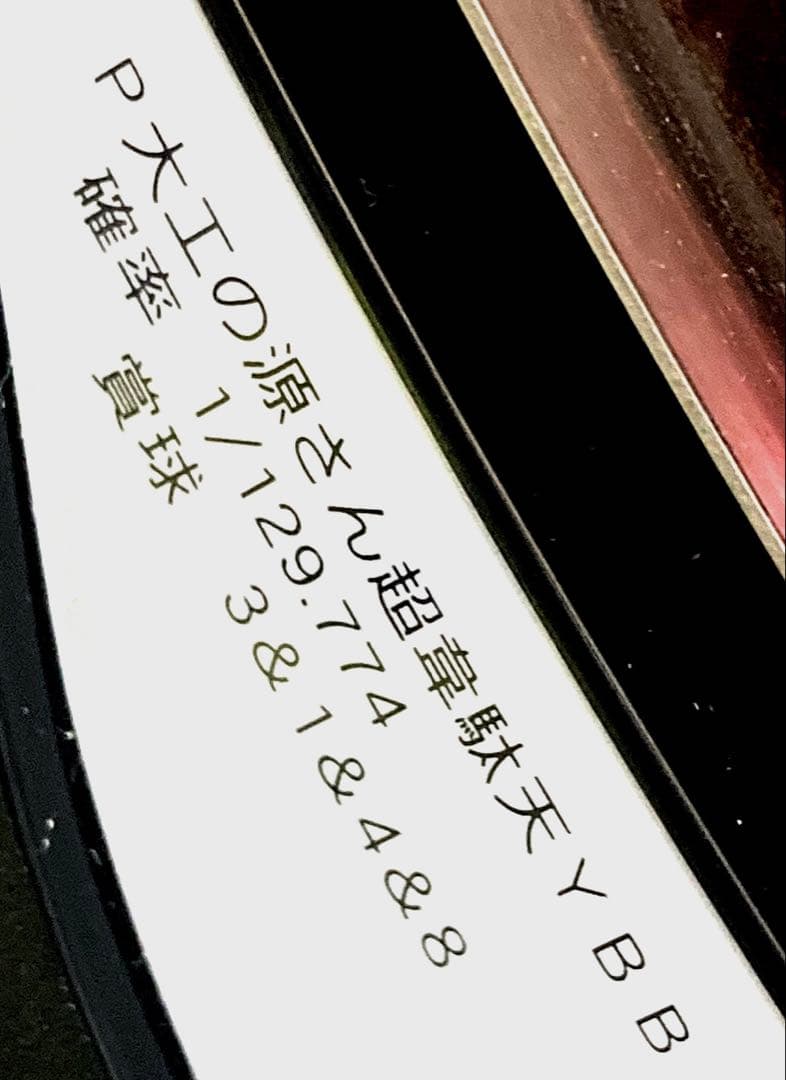 P大工の源さん超韋駄天YBB
確率 1/129.774
賞球 3&1&4&8